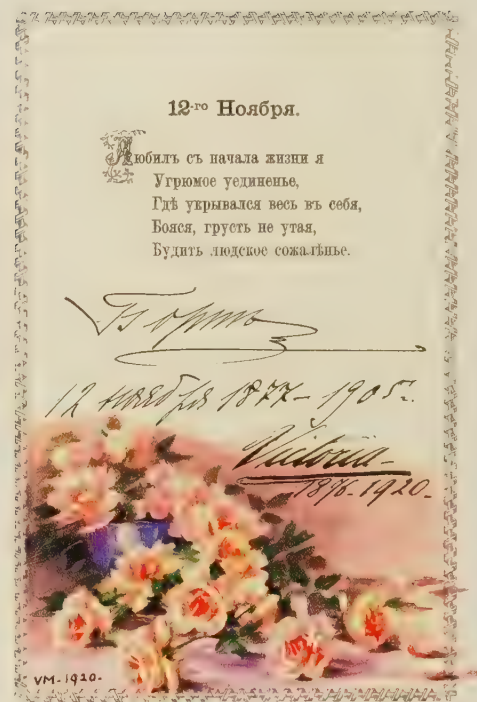 12-го Ноября.
Любилъ съ начала жизни я
Угрюмое уединенье,
Гдѣ укрывался весь въ себя,
Бояся, грусть не утая,
Будить людское сожалѣнье.
Борисъ
12 ноября 1877-1905 г.
Victoria-
1876-1920-
VM-1920-